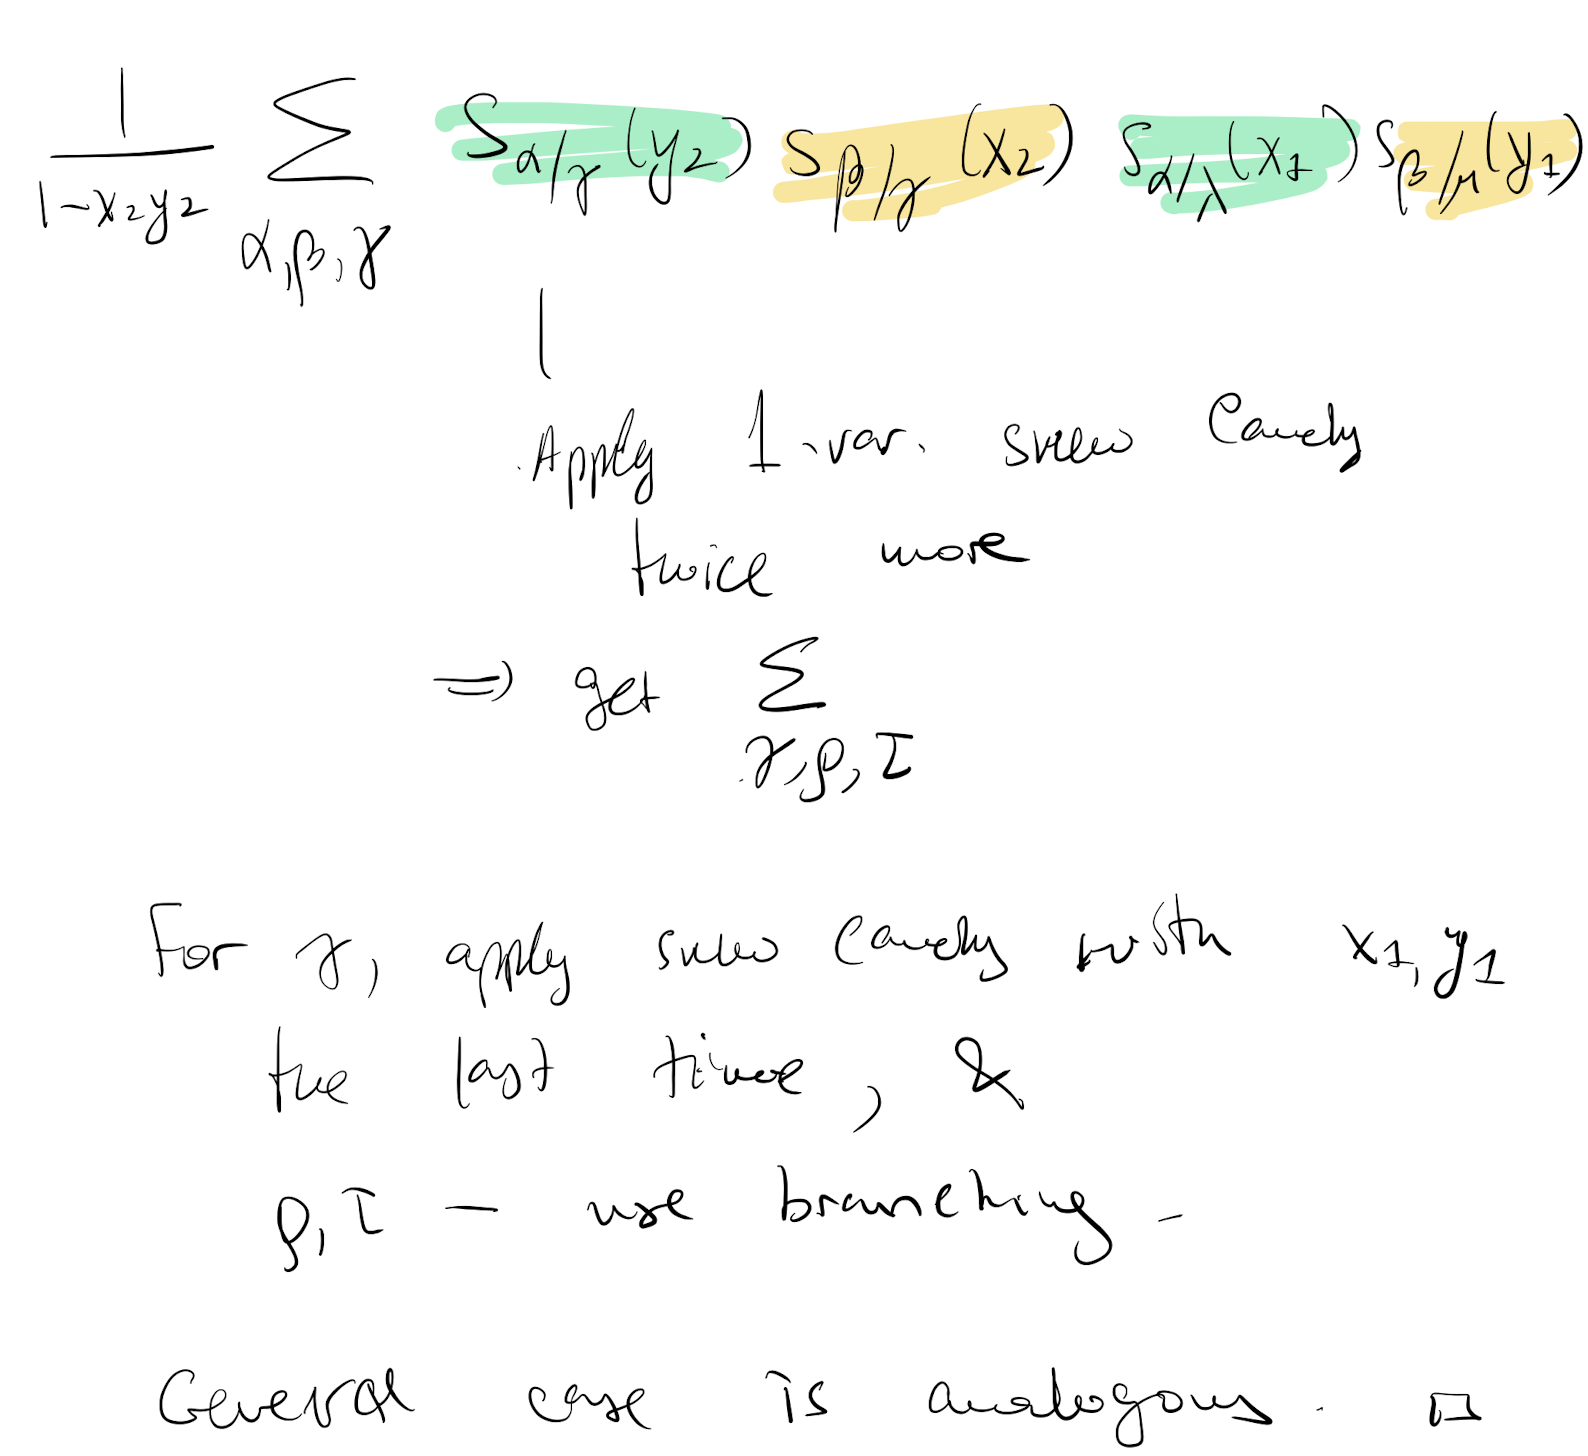 1/(1-x₂y₂) Σ_{α,β,γ} S_{α/γ}(y₂) S_{β/γ}(x₂) S_{α/λ}(x₁) S_{β/μ}(y₁)
Apply 1-var. skew Cauchy
twice more
⇒ get Σ_{γ,ρ,τ}
For γ, apply skew Cauchy with x₁, y₁
the last time, &
ρ, τ — use branching.
General case is analogous. □